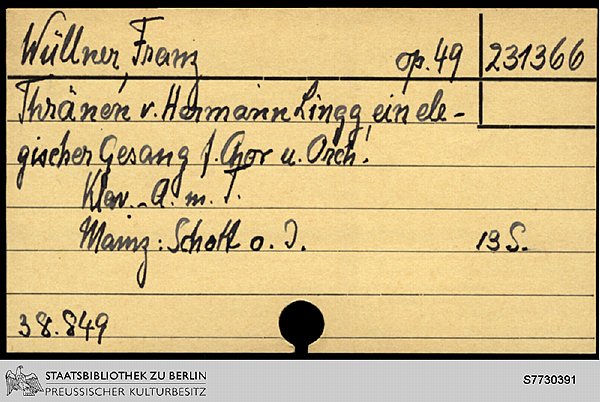 Wüllner, Franz op. 49 231366
Thränen v. Hermann Lingg ein ele-
gischer Gesang f. Chor u. Orch.
Klav.-A. m. T.
Mainz: Schott o. J. 13 S.
38.849
STAATSBIBLIOTHEK ZU BERLIN
PREUSSISCHER KULTURBESITZ
S7730391